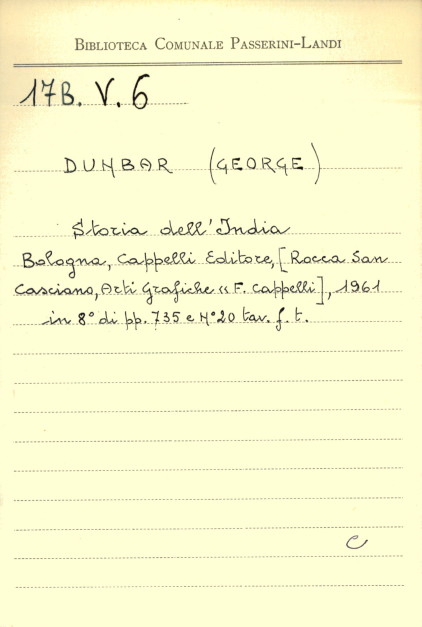 BIBLIOTECA COMUNALE PASSERINI-LANDI
17B. V. 6
DUNBAR (GEORGE)
Storia dell'India
Bologna, Cappelli Editore, [Rocca San
Casciano, Arti Grafiche « F. Cappelli], 1961
in 8° di pp. 735 e N° 20 tav. f. t.
C